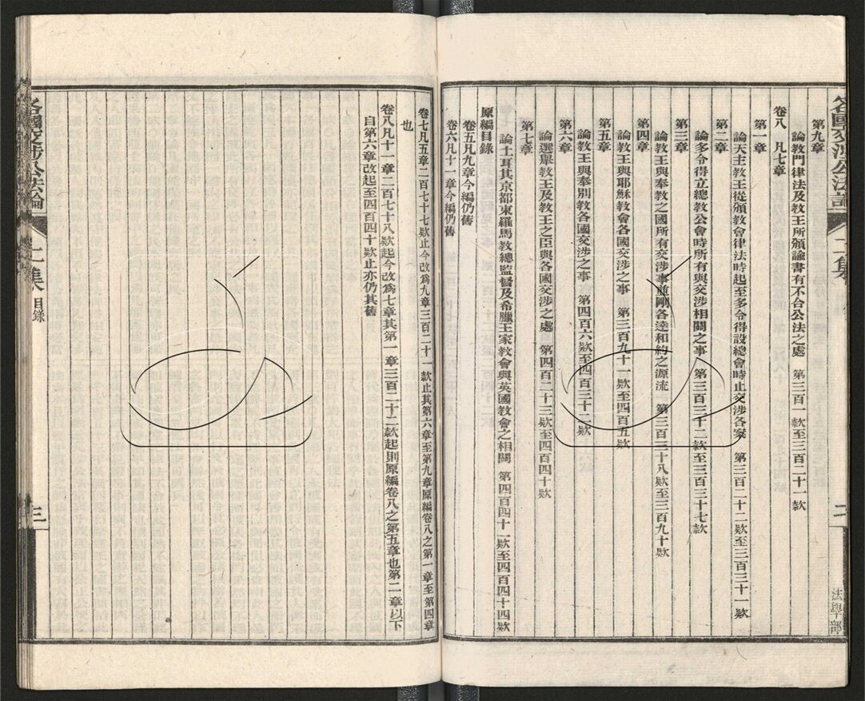 各國交涉公法論
二集
二
法學部
第九章
論教門律法及教王所頒諭書有不合公法之處 第三百一款至三百二十一款
卷八 凡七章
第一章
論天主教王從頒教會律法時起至多令得設總會時止交涉各案 第三百二十二款至三百三十一款
第二章
論多令得立總教公會時所有與交涉相關之事 第三百三十二款至三百三十七款
第三章
論教王與奉教之國所有交涉事並剛各達和約之源流 第三百三十八款至三百九十款
第四章
論教王與耶穌教會各國交涉之事 第三百九十一款至四百五款
第五章
論教王與奉別教各國交涉之事 第四百六款至四百二十二款
第六章
論選舉教王及教王之臣與各國交涉之處 第四百二十三款至四百四十款
第七章
論土耳其京都東羅馬教總監督及希臘王家教會與英國教會之相關 第四百四十一款至四百四十四款
原編目錄
卷五凡九章今編仍舊
卷六凡十一章今編仍舊
卷七凡五章二百七十七款止今改爲九章三百二十一款止其第六章至第九章原編卷八之第一章至第四章
也
卷八凡十一章二百七十八款起今改爲七章其第一章三百二十二款起則原編卷八之第五章也第二章以下
自第六章改起至四百四十款止亦仍其舊
各國交涉公法論
二集
目錄
三